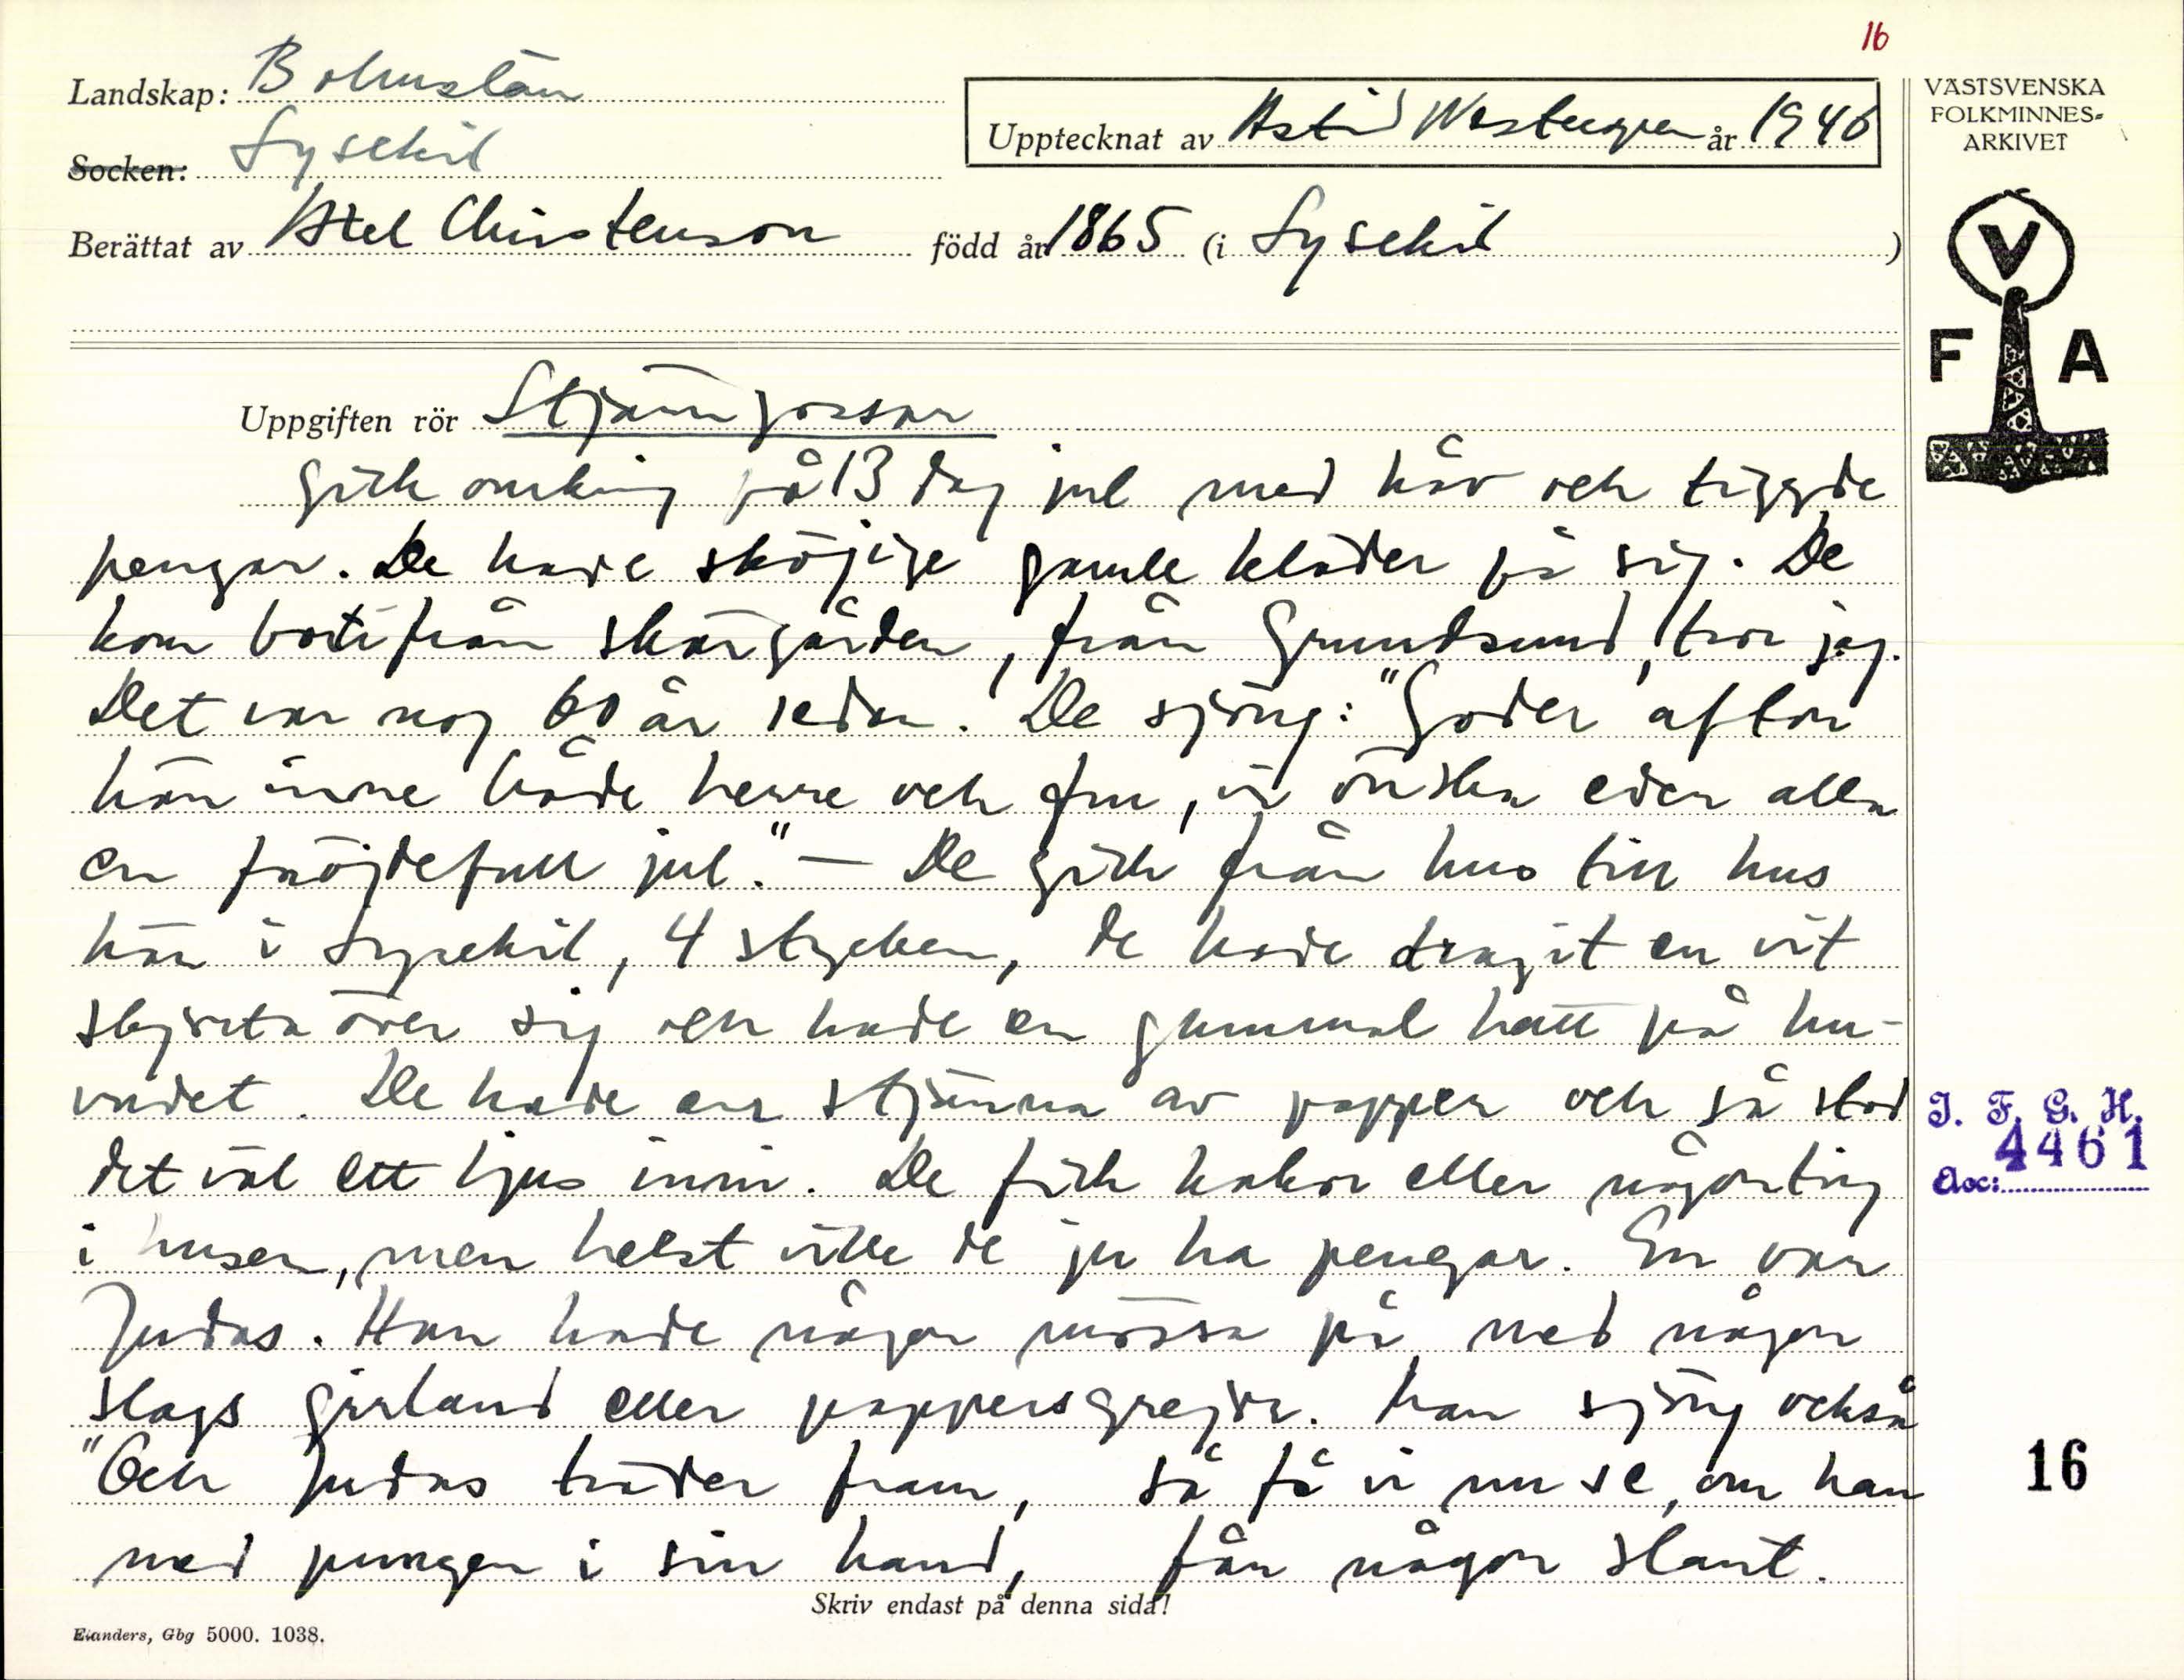 16
Landskap: Bohuslän
Socken: Lysekil
Upptecknat av Astrid Westergren år 1946
Berättat av Axel Christenson född år 1865 (i Lysekil )
VÄSTSVENSKA
FOLKMINNES-
ARKIVET
V
F A
Uppgiften rör Stjärngossar
gick omkring på 13 dag jul med håv och tiggde
pengar. De hade sköjige gamle kläder på sig. De
kom bortifrån skärgården, från Grundsund, tror jag.
Det var nog 60 år sedan. De sjöng: "Goder afton
här inne både herre och fru, vi önska eder alla
en fröjdefull jul." — De gick från hus till hus
här i Lysekil, 4 stycken, de hade dragit en vit
skjorta över sig och hade en gammal hatt på hu-
vudet. De hade en stjärna av papper och så stod
det väl ett ljus inni. De fick kakor eller någonting
i husen, men helst ville de ju ha pengar. En var
Judas. Han hade någon mössa på med någon
slags girland eller pappersgrejor. Han sjöng också
"Och Judas träder fram, så få vi nu se, om han
med pungen i sin hand, får någon slant.
I. F. G. H.
4461
Acc:
16
Skriv endast på denna sida!
Elanders, Gbg 5000. 1038.